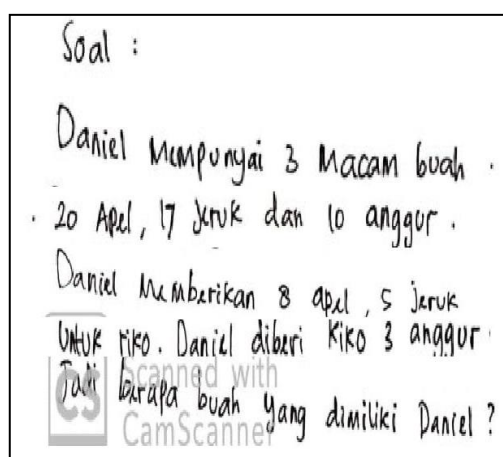 Soal :
Daniel Mempunyai 3 Macam buah .
. 20 Apel, 17 Jeruk dan 10 anggur .
Daniel Memberikan 8 apel, 5 jeruk
Untuk riko. Daniel diberi Kiko 3 anggur.
Jadi berapa buah yang dimiliki Daniel ?
CS Scanned with
CamScanner